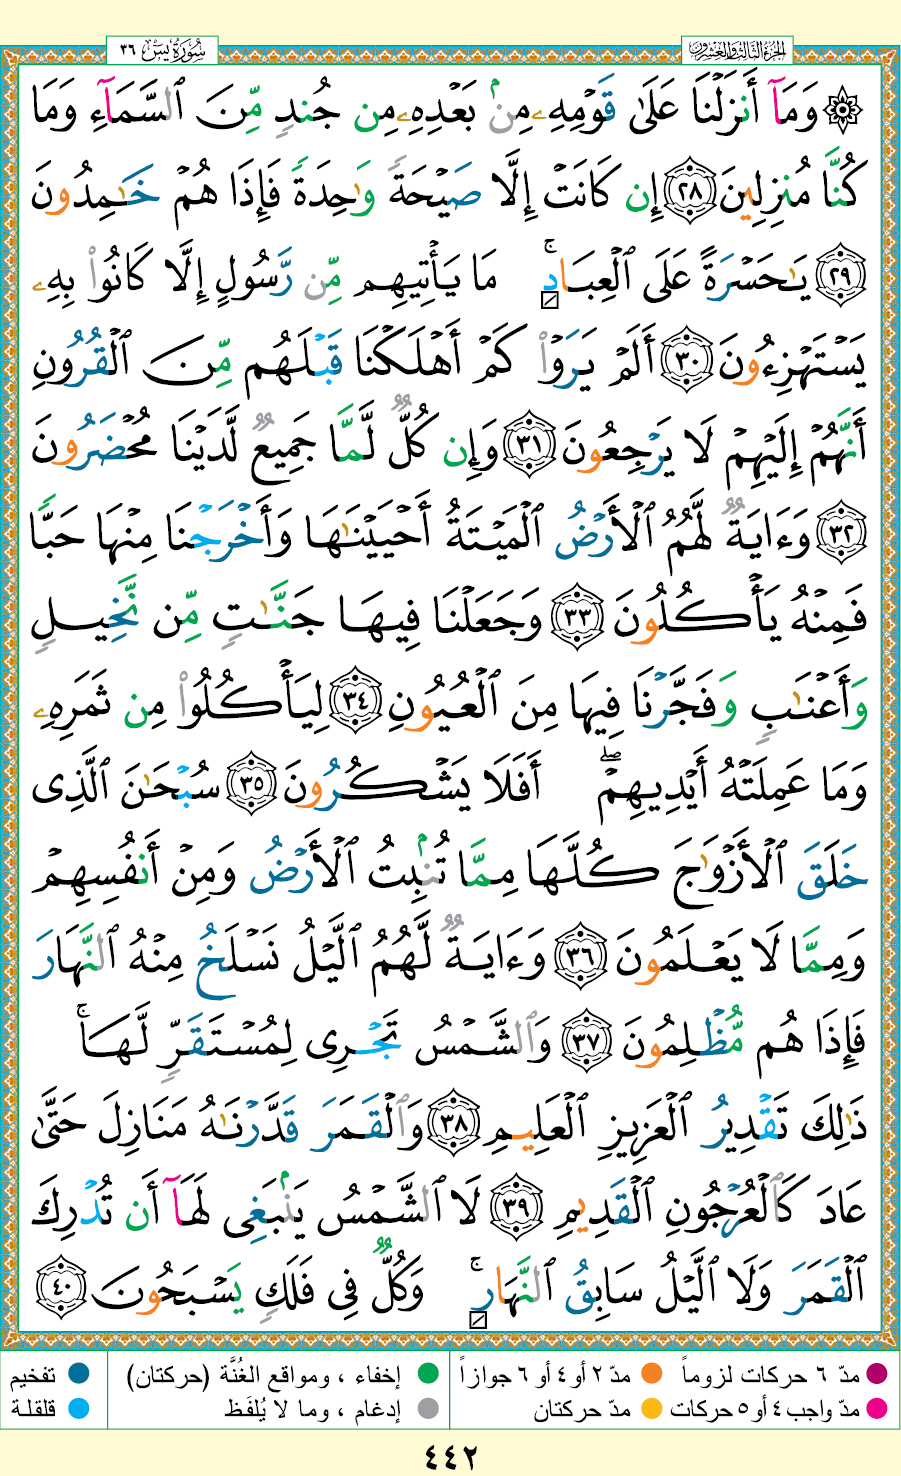 سُورَةُ يسٓ ٣٦
الجزء الثالث والعشرون
۞ وَمَآ أَنزَلْنَا عَلَىٰ قَوْمِهِۦ مِنۢ بَعْدِهِۦ مِن جُندٍ مِّنَ ٱلسَّمَآءِ وَمَا
كُنَّا مُنزِلِينَ ٢٨ إِن كَانَتْ إِلَّا صَيْحَةً وَٰحِدَةً فَإِذَا هُمْ خَٰمِدُونَ
٢٩ يَٰحَسْرَةً عَلَى ٱلْعِبَادِ ۚ مَا يَأْتِيهِم مِّن رَّسُولٍ إِلَّا كَانُوا۟ بِهِۦ
يَسْتَهْزِءُونَ ٣٠ أَلَمْ يَرَوْا۟ كَمْ أَهْلَكْنَا قَبْلَهُم مِّنَ ٱلْقُرُونِ
أَنَّهُمْ إِلَيْهِمْ لَا يَرْجِعُونَ ٣١ وَإِن كُلٌّ لَّمَّا جَمِيعٌ لَّدَيْنَا مُحْضَرُونَ
٣٢ وَءَايَةٌ لَّهُمُ ٱلْأَرْضُ ٱلْمَيْتَةُ أَحْيَيْنَٰهَا وَأَخْرَجْنَا مِنْهَا حَبًّا
فَمِنْهُ يَأْكُلُونَ ٣٣ وَجَعَلْنَا فِيهَا جَنَّٰتٍ مِّن نَّخِيلٍ
وَأَعْنَٰبٍ وَفَجَّرْنَا فِيهَا مِنَ ٱلْعُيُونِ ٣٤ لِيَأْكُلُوا۟ مِن ثَمَرِهِۦ
وَمَا عَمِلَتْهُ أَيْدِيهِمْ ۖ أَفَلَا يَشْكُرُونَ ٣٥ سُبْحَٰنَ ٱلَّذِى
خَلَقَ ٱلْأَزْوَٰجَ كُلَّهَا مِمَّا تُنۢبِتُ ٱلْأَرْضُ وَمِنْ أَنفُسِهِمْ
وَمِمَّا لَا يَعْلَمُونَ ٣٦ وَءَايَةٌ لَّهُمُ ٱلَّيْلُ نَسْلَخُ مِنْهُ ٱلنَّهَارَ
فَإِذَا هُم مُّظْلِمُونَ ٣٧ وَٱلشَّمْسُ تَجْرِى لِمُسْتَقَرٍّ لَّهَا ۚ
ذَٰلِكَ تَقْدِيرُ ٱلْعَزِيزِ ٱلْعَلِيمِ ٣٨ وَٱلْقَمَرَ قَدَّرْنَٰهُ مَنَازِلَ حَتَّىٰ
عَادَ كَٱلْعُرْجُونِ ٱلْقَدِيمِ ٣٩ لَا ٱلشَّمْسُ يَنۢبَغِى لَهَآ أَن تُدْرِكَ
ٱلْقَمَرَ وَلَا ٱلَّيْلُ سَابِقُ ٱلنَّهَارِ ۚ وَكُلٌّ فِى فَلَكٍ يَسْبَحُونَ ٤٠
مدّ ٦ حركات لزوماً مدّ ٢ أو ٤ أو ٦ جوازاً إخفاء ، ومواقع الغُنَّة (حركتان) تفخيم
مدّ واجب ٤ أو ٥ حركات مدّ حركتان إدغام ، وما لا يُلفَظ قلقلة
٤٤٢